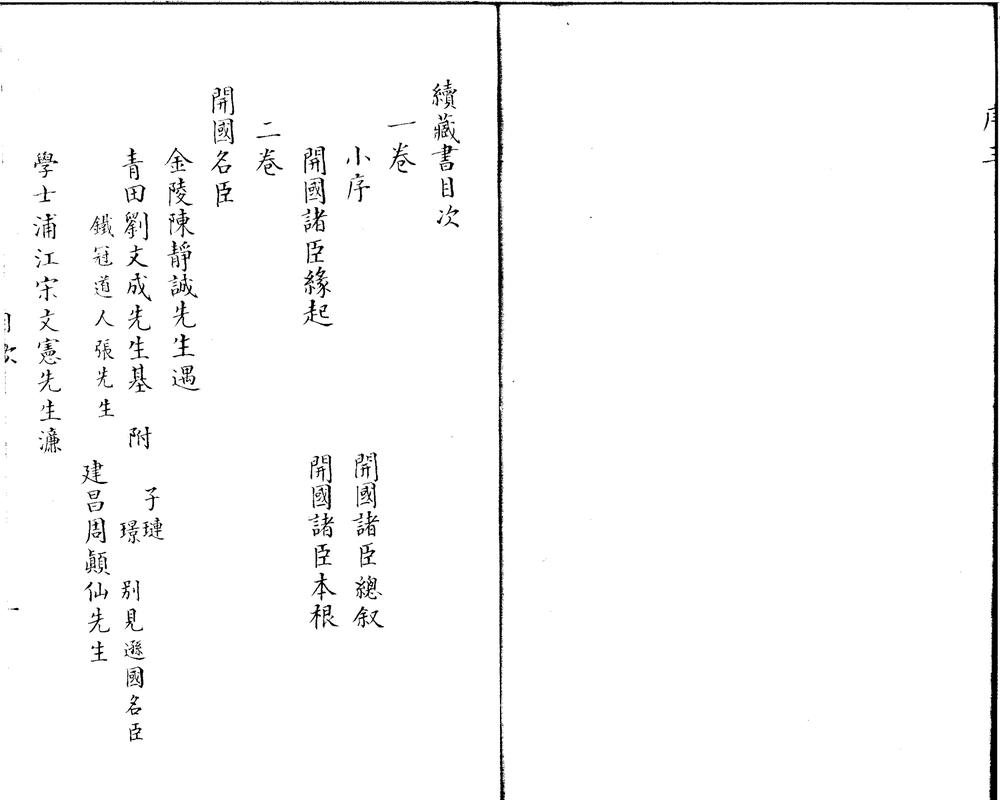 續藏書目次
一卷
小序　開國諸臣總叙
開國諸臣緣起　開國諸臣本根
二卷
開國名臣
金陵陳靜誠先生遇
青田劉文成先生基　附　子璉　璟　别見遜國名臣
鐵冠道人張先生　建昌周顛仙先生
學士浦江宋文憲先生濂
目次
一